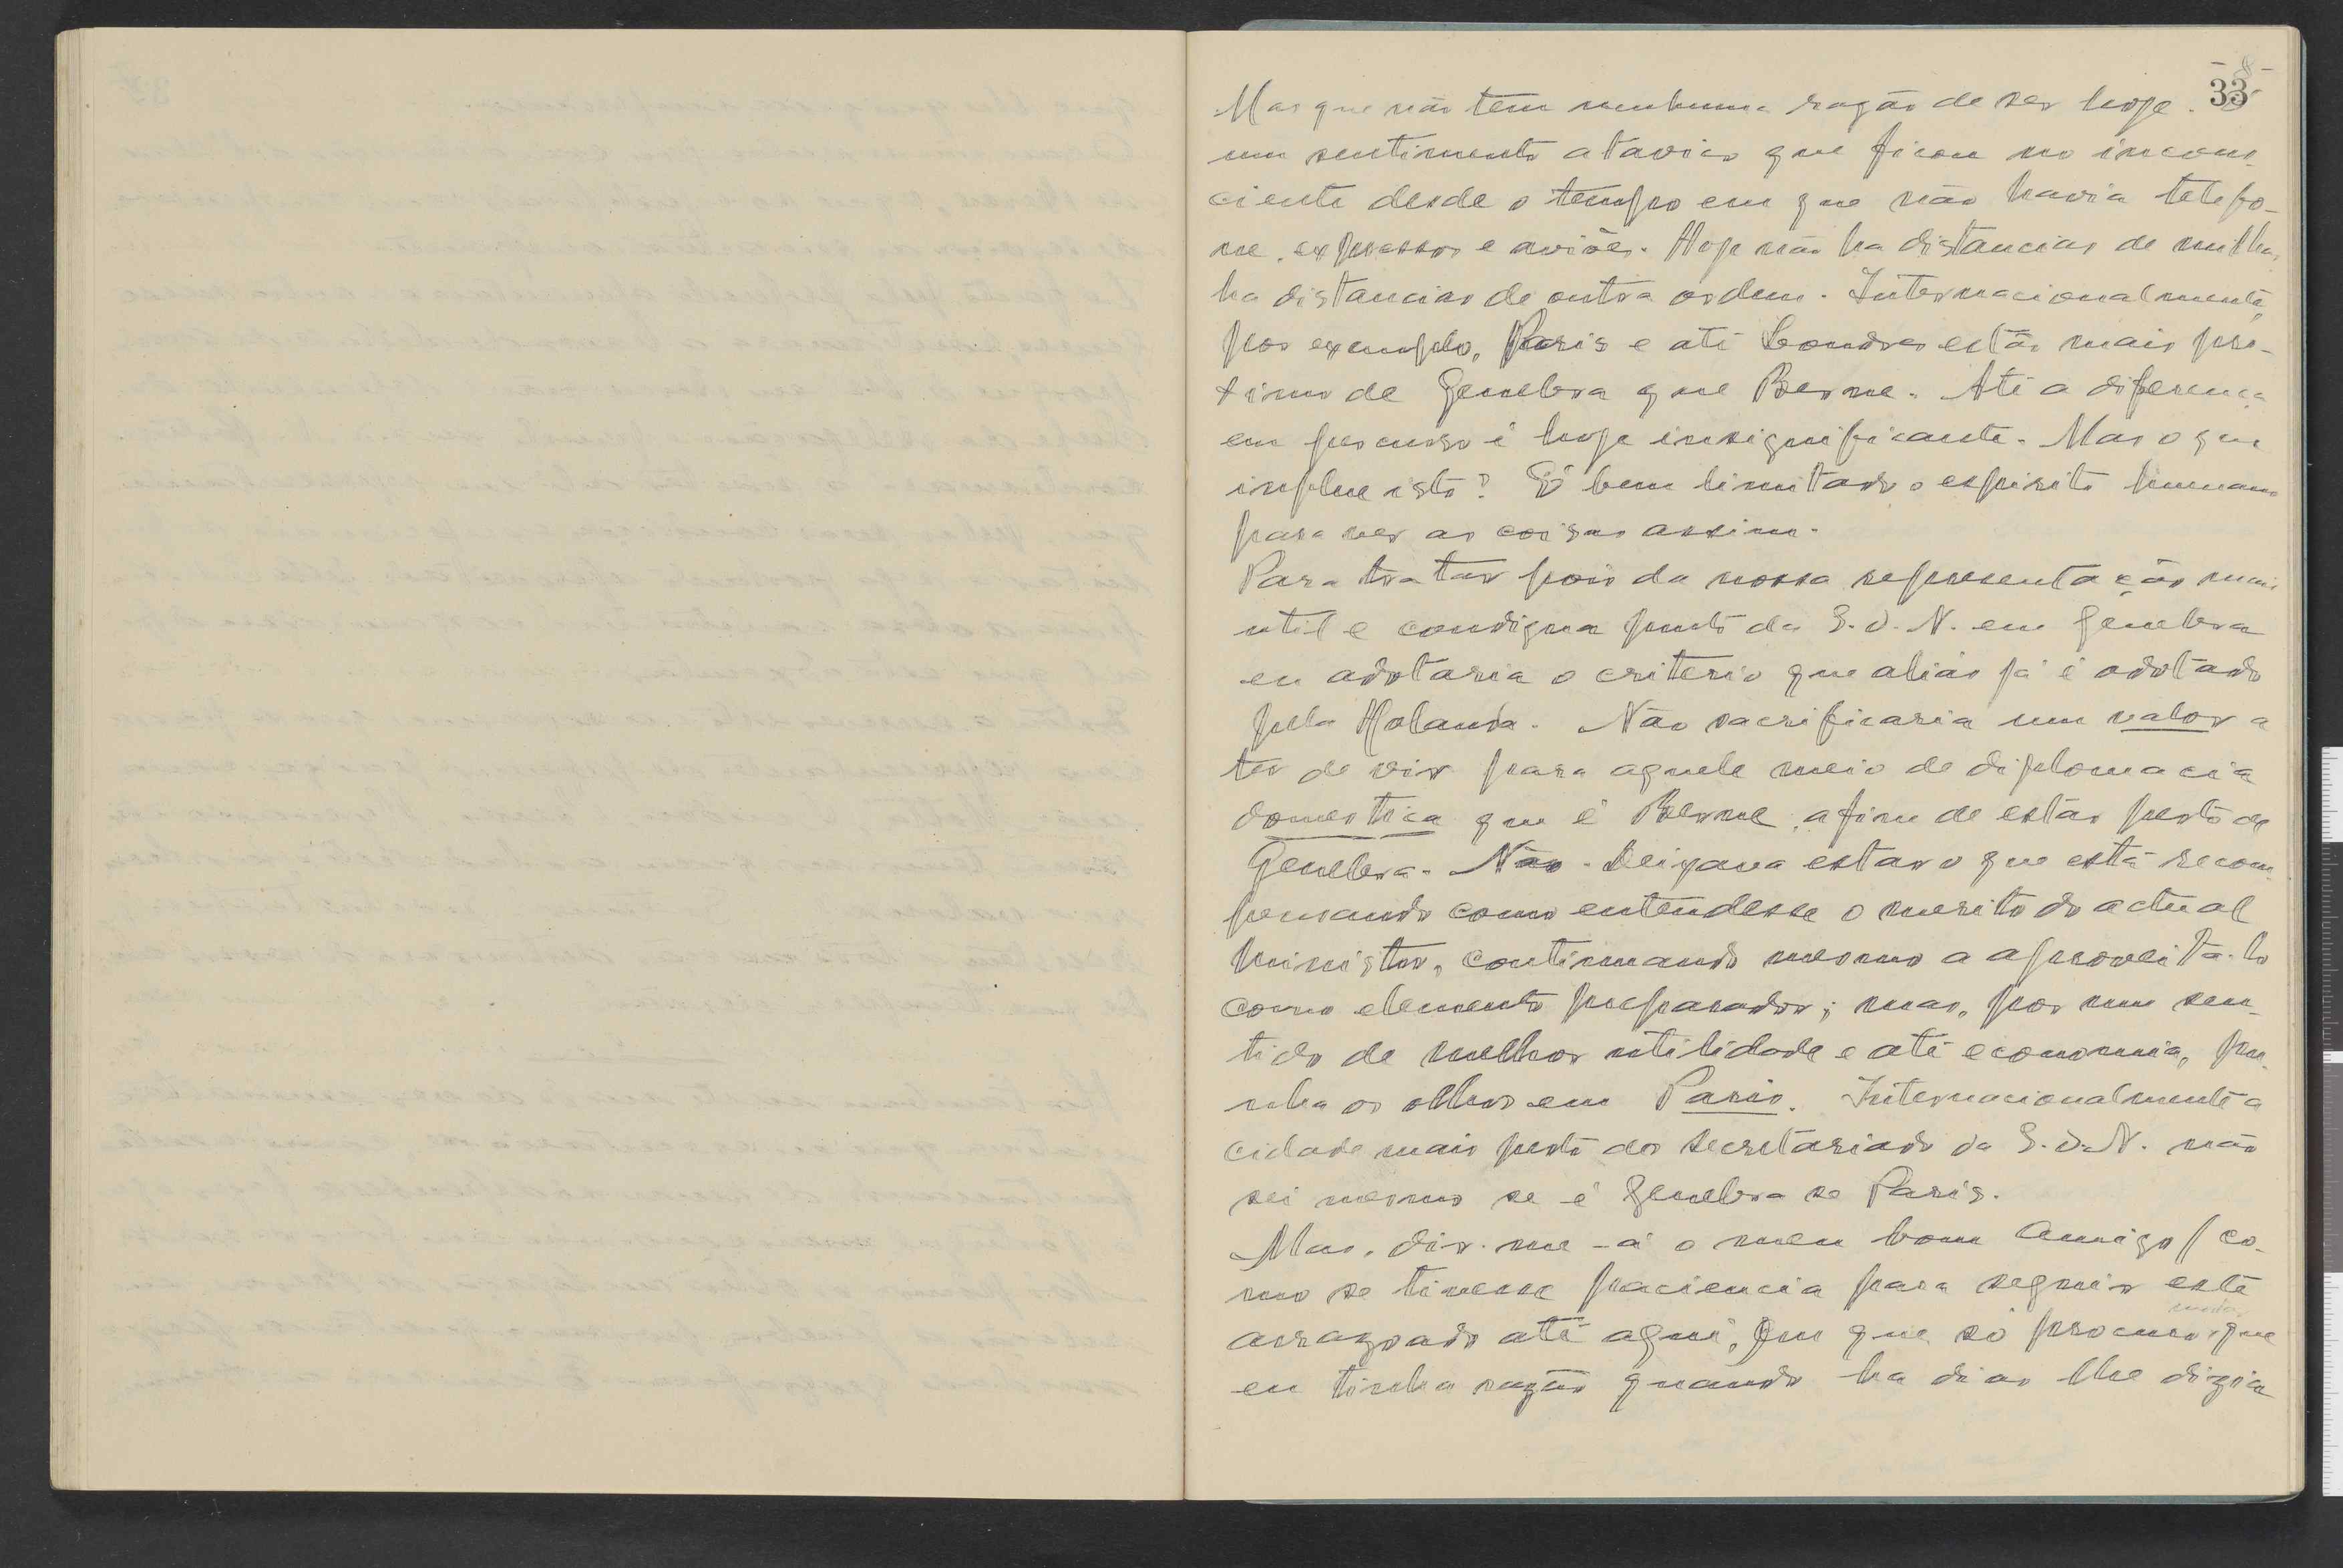 -8-
33
Mas que não tem nenhuma razão de ser hoje. É
um sentimento atavico que ficou no incons-
ciente desde o tempo em que não havia telefo-
ne, expressos e aviões. Hoje não ha distancias de milhas,
ha distancias de outra ordem. Internacionalmente,
por exemplo, Paris e até Londres estão mais pro-
ximo de Genebra que Berne. Até a diferença
em percurso é hoje insignificante. Mas o que
influe isto? É bem limitado o espirito humano
para ver as coisas assim.
Para tratar pois da nossa representação mais
util e condigna junto da S.d.N. em Genebra
eu adotaria o criterio que aliás já é adotado
pela Holanda. Não sacrificaria um valor a
ter de vir para aquele meio de diplomacia
domestica que é Berne, afim de estar perto de
Genebra. Não. Deixava estar o que está recom-
pensando como entendesse o merito do actual
ministro, continuando mesmo a aproveita-lo
como elemento preparador; mas, por um sen-
tido de melhor utilidade e até economia, pu-
nha os olhos em Paris. Internacionalmente a
cidade mais perto do secretariado da S.d.N. não
sei mesmo se é Genebra se Paris.
Mas, dir-me-á o meu bom Amigo (co-
mo se tivesse paciencia para seguir este
arrazoado até aqui, em que só procuro que
eu tinha razão quando ha dias lhe dizia